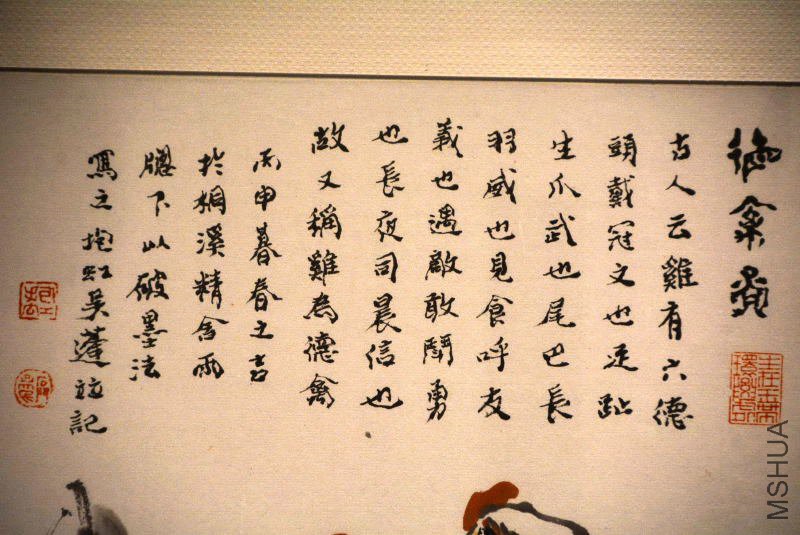 德禽
古人云雞有六德
頭戴冠文也足趾
生爪武也尾巴長
羽威也見食呼友
義也遇敵敢鬪勇
也長夜司晨信也
故又稱雞為德禽
丙申暮春之吉
於桐溪精舍雨
牕下以破墨法
寫之抱虹吳蓬竝記
MSHUA